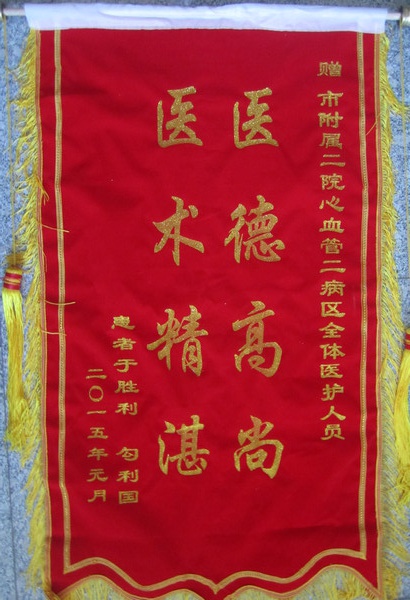 赠 市附属二院心血管二病区全体医护人员
医德高尚
医术精湛
患者于胜利 勾利国
二〇一五年元月